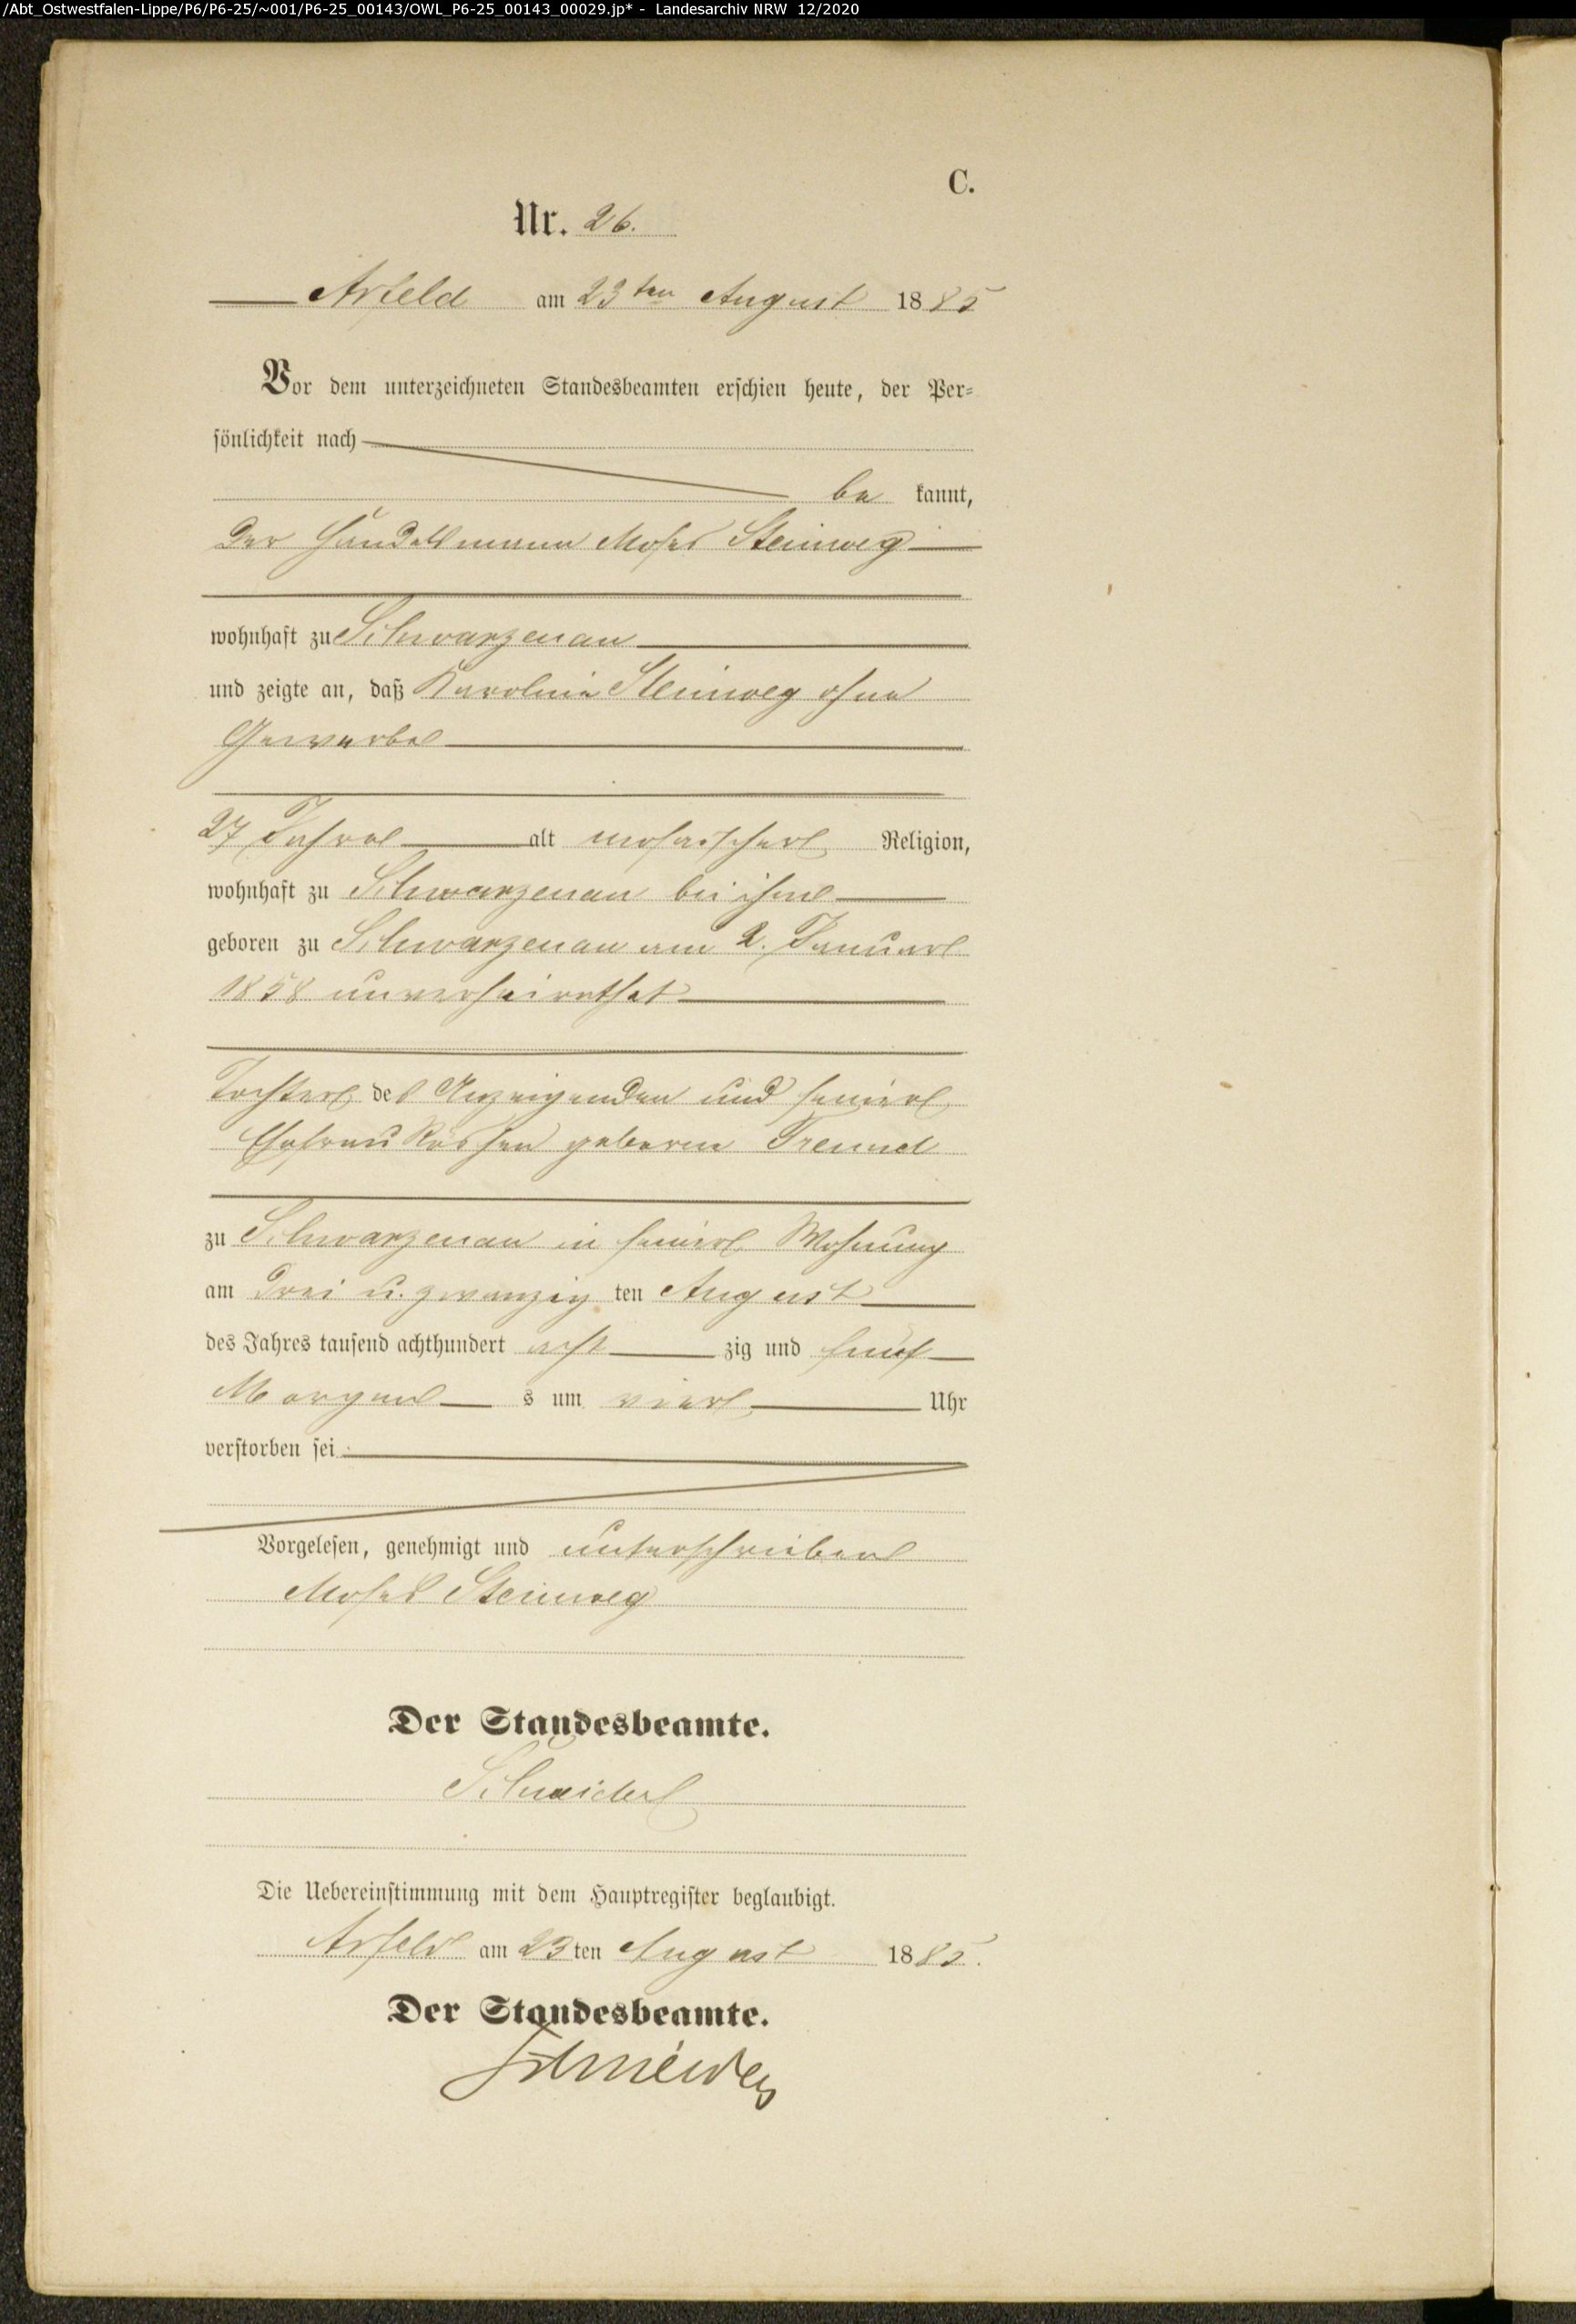 /Abt_Ostwestfalen-Lippe/P6/P6-25/~001/P6-25_00143/OWL_P6-25_00143_00029.jp* - Landesarchiv NRW 12/2020
C.
Nr. 26.
Arfeld am 23ten August 1885
Vor dem unterzeichneten Standesbeamten erschien heute, der Per-
sönlichkeit nach
be kannt,
der Handelsmann Moses Steinweg
wohnhaft zu Schwarzenau
und zeigte an, daß Karoline Steinweg ohne
Gewerbe
27 Jahre alt mosaischer Religion,
wohnhaft zu Schwarzenau bei ihm
geboren zu Schwarzenau am 2. Januar
1858 unverheirathet
Tochter des Anzeigenden und seiner
Ehefrau Röschen geborne Freund
zu Schwarzenau in seiner Wohnung
am drei u. zwanzig ten August
des Jahres tausend achthundert acht zig und fünf
Morgen s um vier Uhr
verstorben sei
Vorgelesen, genehmigt und unterschrieben
Moses Steinweg
Der Standesbeamte.
Schneider
Die Uebereinstimmung mit dem Hauptregister beglaubigt.
Arfeld am 23ten August 1885.
Der Standesbeamte.
Schneider